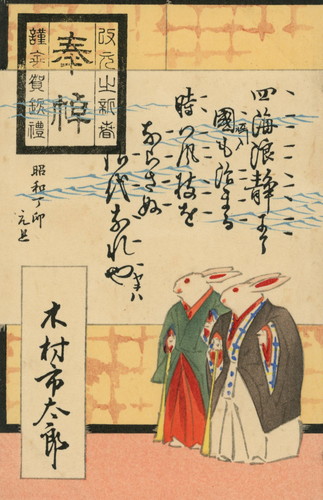 改元之新春
奉悼
四海浪静にて
國も治まる
時つ風枝を
ならさぬ
御代なれや
昭和丁卯
元旦
木村市太郎